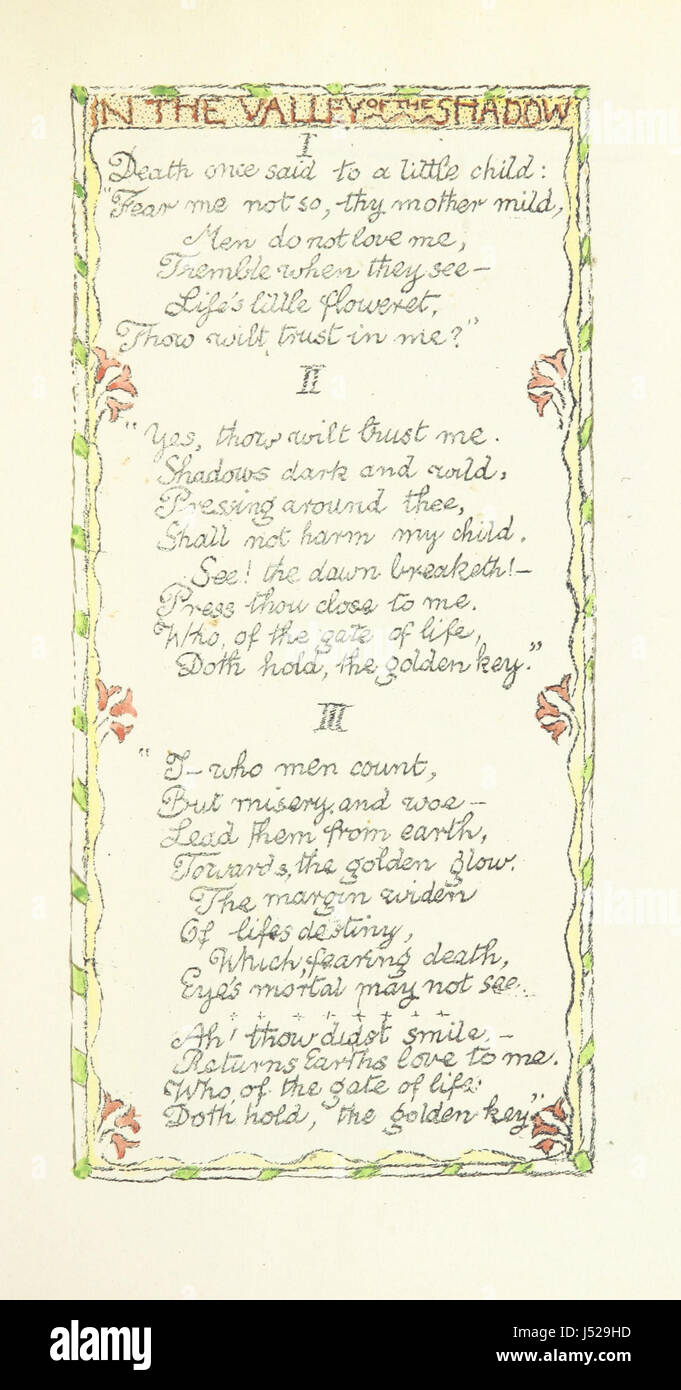 IN THE VALLEY OF THE SHADOW
I
Death once said to a little child:
"Fear me not so, thy mother mild,
Men do not love me,
Tremble when they see—
Life's little floweret,
Thow wilt, trust in me?"
II
"Yes, thow wilt trust me.
Shadows dark and wild,
Pressing around thee,
Shall not harm my child.
See! the dawn breaketh!—
Press thou close to me.
Who, of the gate of life,
Doth hold, the golden key."
III
"I— who men count,
But misery, and woe—
Lead them from earth,
Towards, the golden glow.
The margin widen
Of lifes destiny,
Which, fearing death,
Eye's mortal may not see.
Ah! thow didst smile,—
Returns Earths love to me.
Who, of the gate of life:
Doth hold, the golden key."
alamy
Image ID: J529HD
www.alamy.com